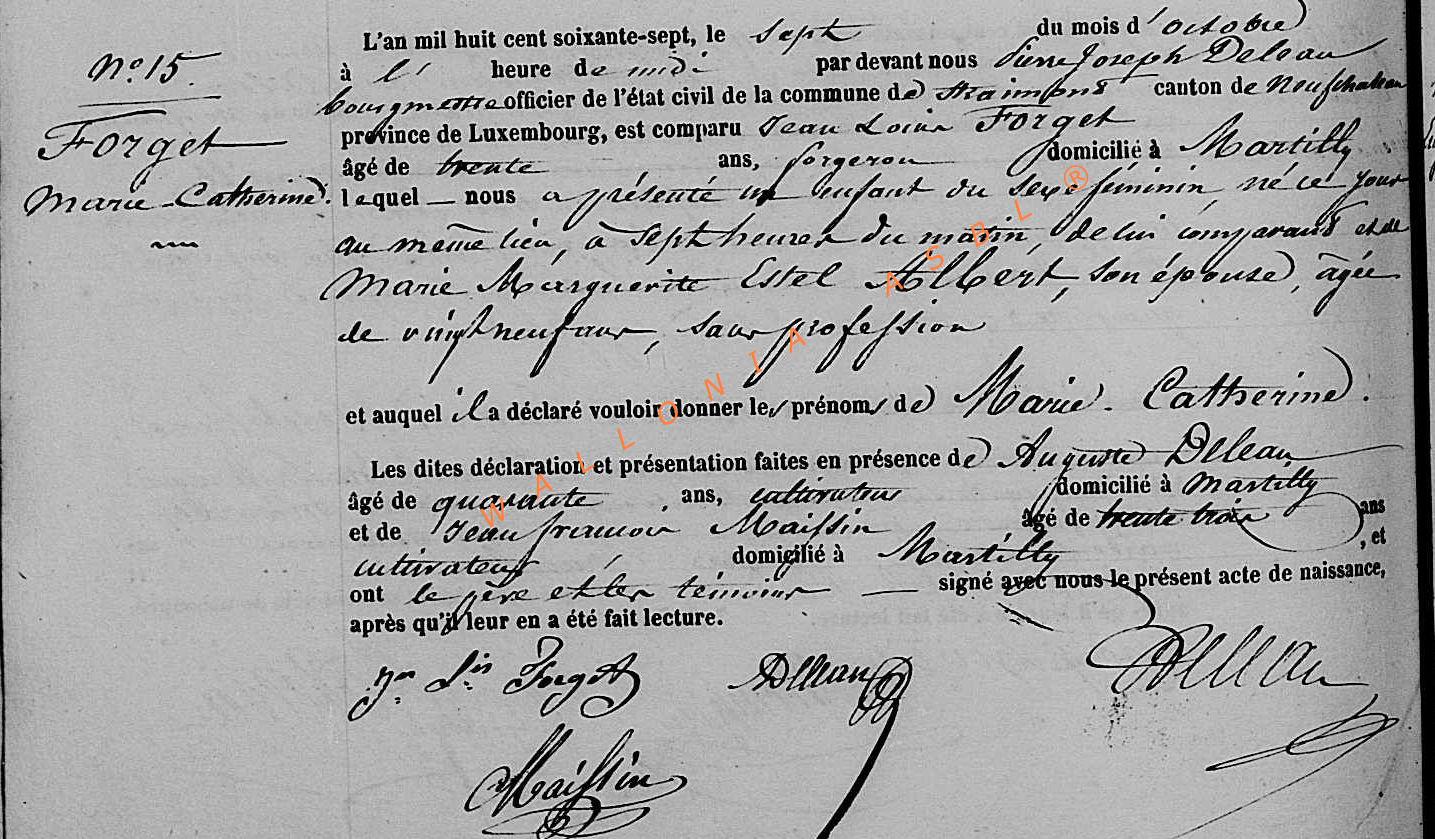 N.o 15.
Forget
Marie-Catherine.
L'an mil huit cent soixante-sept, le sept du mois d'octobre
à l' heure de midi par devant nous Pierre Joseph Deleau
bourgmestre officier de l'état civil de la commune de Straimont canton de Neufchateau
province de Luxembourg, est comparu Jean Louis Forget
âgé de trente ans, forgeron domicilié à Martilly
lequel — nous a présenté un enfant du sexe féminin, né ce jour
au même lieu, à sept heures du matin, de lui comparant et de
Marie Marguerite Estel Albert, son épouse, âgée
de vingt neuf ans, sans profession
et auquel il a déclaré vouloir donner les prénoms de Marie-Catherine.
Les dites déclaration et présentation faites en présence de Auguste Deleau
âgé de quarante ans, cultivateur domicilié à Martilly
et de Jean françois Maissin âgé de trente trois ans
cultivateur domicilié à Martilly, et
ont le père et les témoins — signé avec nous le présent acte de naissance,
après qu'il leur en a été fait lecture.
Jn Ls Forget ADeleau Deleau
Maissin
WALLONIA ASBL ®